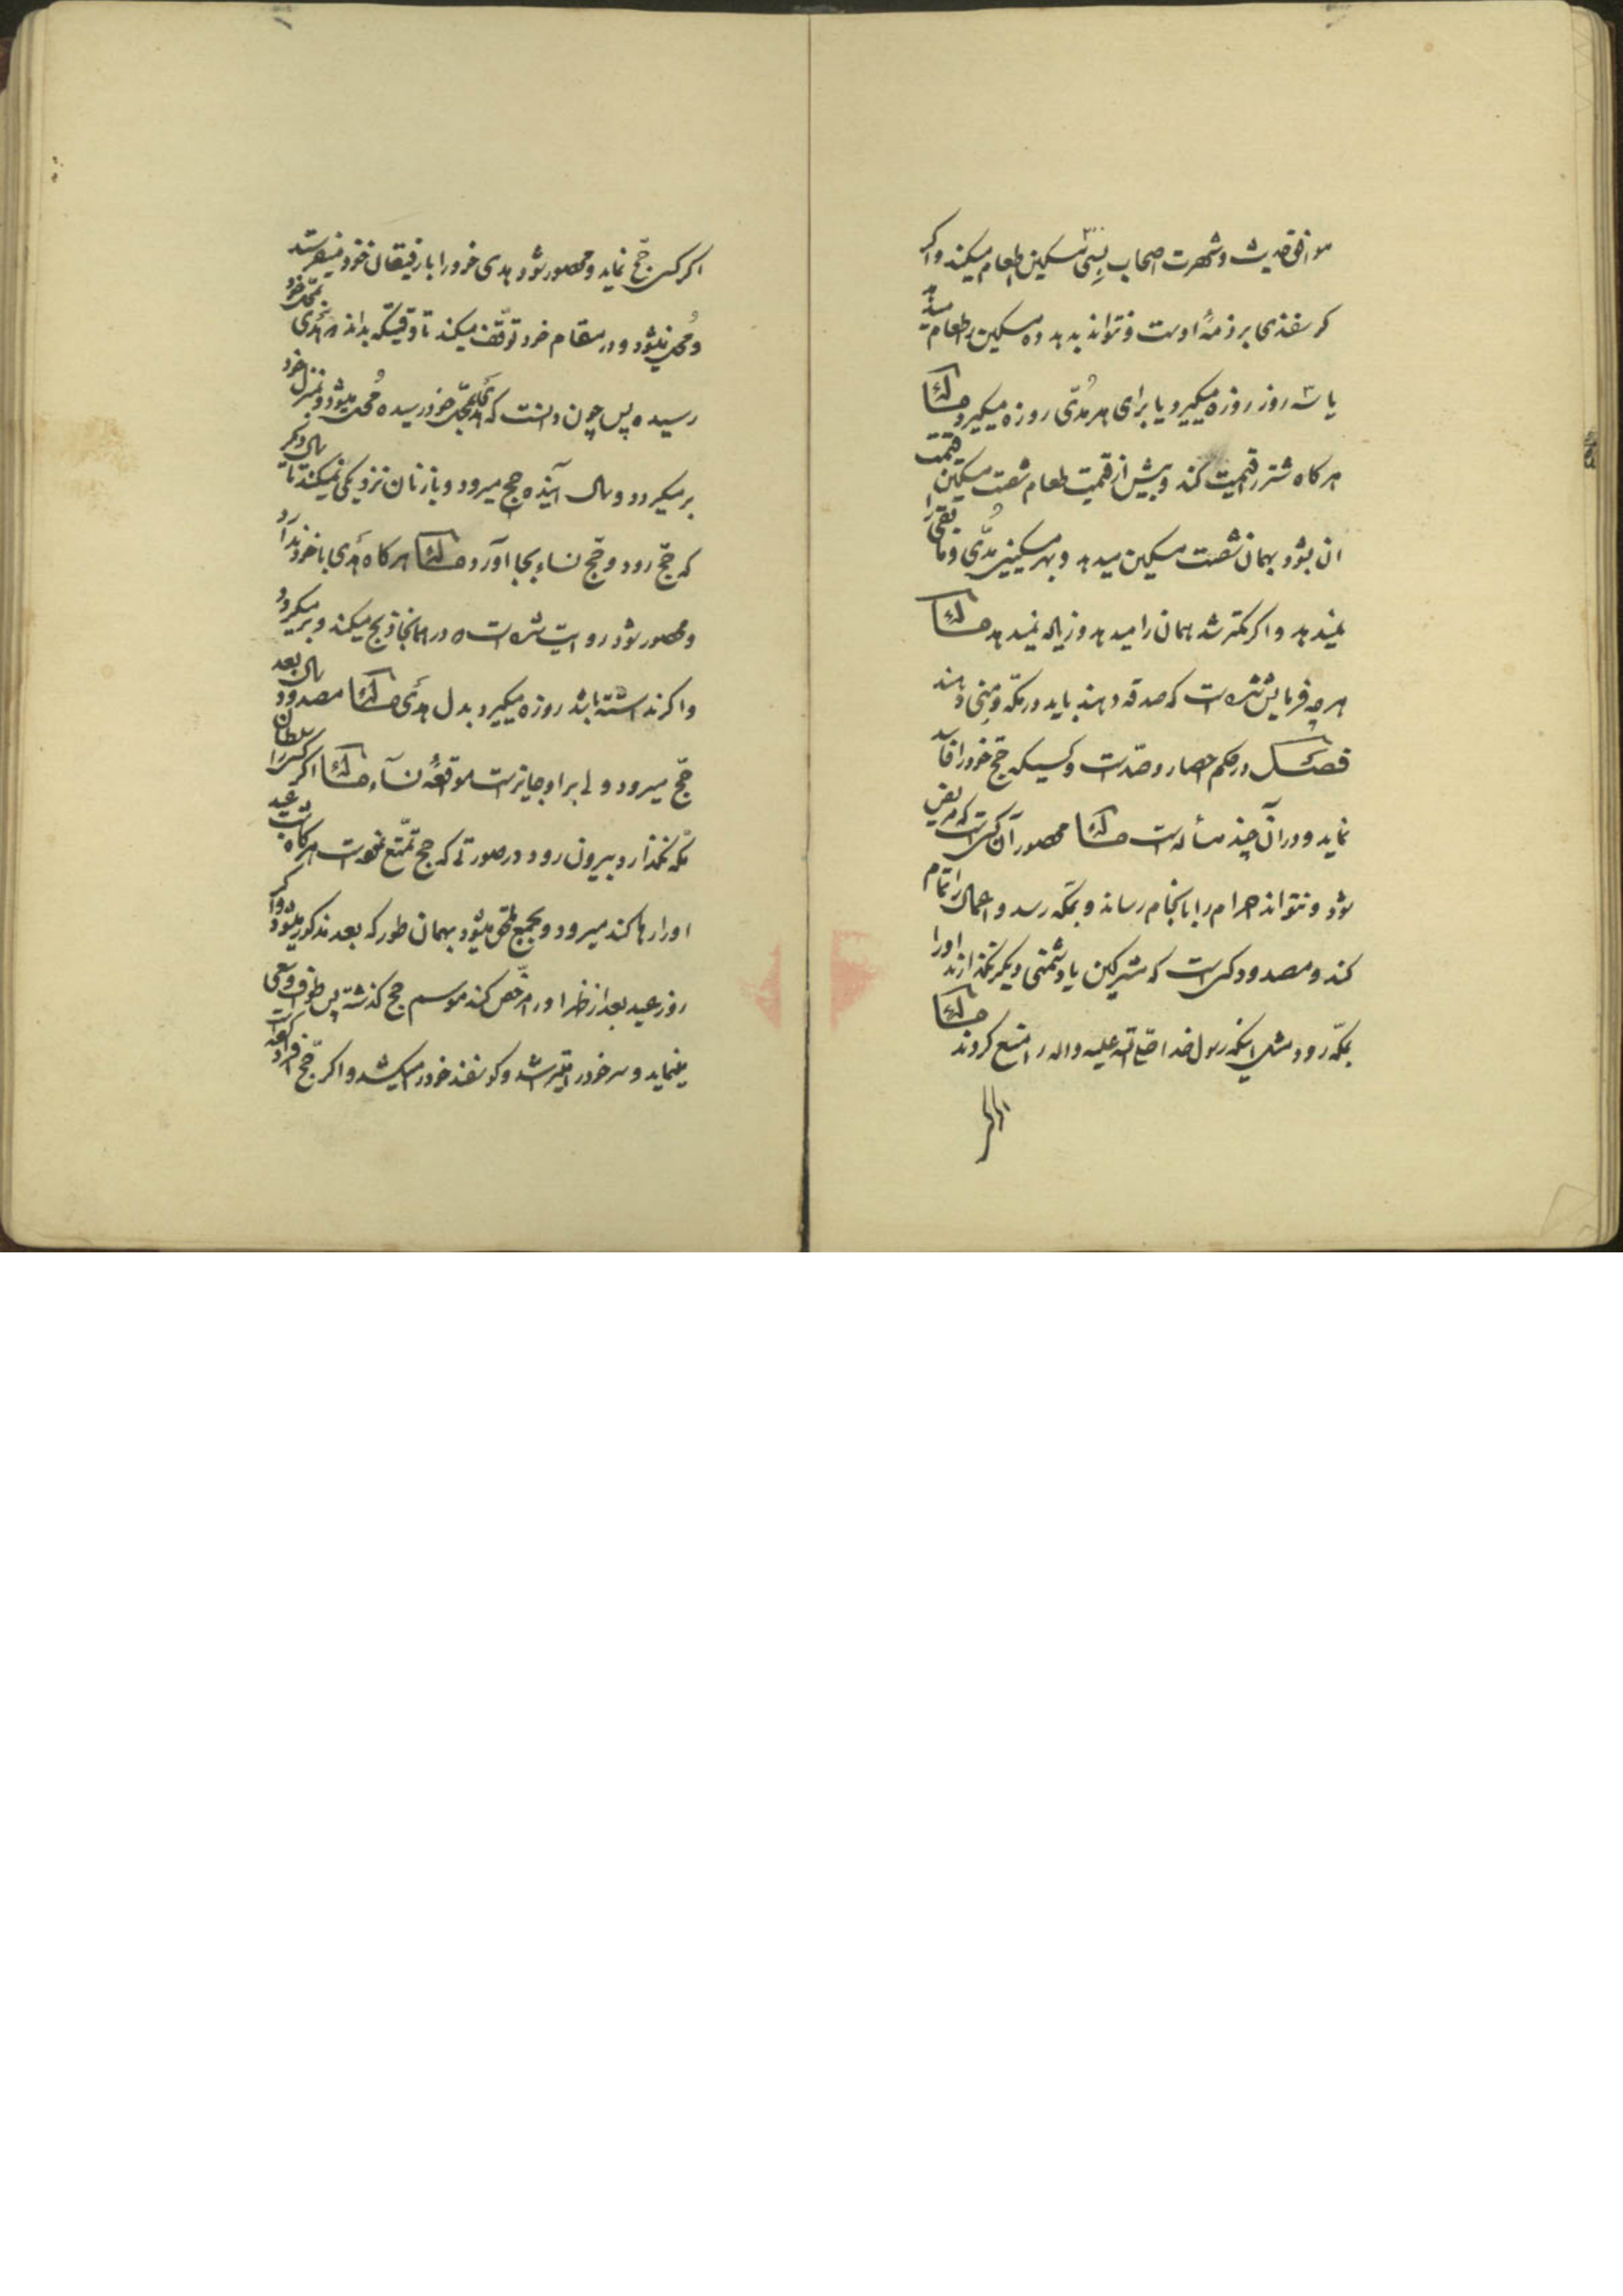 موافق حدیث و شهرت اصحاب بسی مسکین اطعام میکند و اکر
کوسفندی بر ذمهٔ اوست و نتواند بدهد ده مسکین را طعام میدهد
یا سه روز روزه میکیرد یا برای هر مدّی روزه میکیرد مسئله
هرکاه شتر را قیمت کند و بیش از قیمت طعام شصت مسکین قیمت
ان بشود بهمان شصت مسکین میدهد و بهر مسکینی مدّی و مابقی را
نمیدهد و اکر کمتر شد همان را میدهد و زیاده نمیدهد مسئله
هر چه فرمایش شده است که صدقه دهند باید در مکّه و منی دهند
فصل در حکم احصار و صدّ است و کسیکه حجّ خود را فاسد
نماید و در آن چند مسأله است مسئله محصور آن کس است که مریض
شود و نتواند احرام را بانجام رساند و بمکّه رسد و اعمال را تمام
کند و مصدود کسی است که مشرکین یا دشمنی دیکر نکذارند او را
بمکّه رود مثل اینکه رسول خدا صلی الله علیه و اله را منع کردند مسئله
اکر
اکر کسی حجّ نماید و محصور شود هدی خود را با رفیقان خود میفرستد
و مُحل نمیشود و در مقام خود توقّف میکند تا وقتیکه بداند هَدی بمحل خود
رسیده پس چون دانست که هَدی بمحلّ خود رسیده مُحل میشود و بمنزل خود
برمیکردد و سال آینده حج میرود و با زنان نزدیکی نمیکند تا سال دیکر
که حجّ رود و حجّ نساء بجا آورد مسئله هرکاه هَدی با خود ندارد
و محصور شود روایت شده است در همانجا ذبح میکند و برمیکردد
و اکر نداشته باشد روزه میکیرد بدل هَدی مسئله مصدود سال بعد
حجّ میرود ولی برای او جایز است مواقعهٔ نساء مسئله اکر کسی را سلطان
مکّه نکذارد بیرون رود در صورتی که حج تمتّع هرکاه شب عید
او را رها کند میرود و بجمع ملحق میشود بهمان طور که بعد مذکور میشود و اکر
روز عید بعد از ظهر او را مرخّص کند موسم حج کذشته پس طواف و سعی
مینماید و سر خود را میتراشد و کوسفند خود را میکشد و اکر حجّ